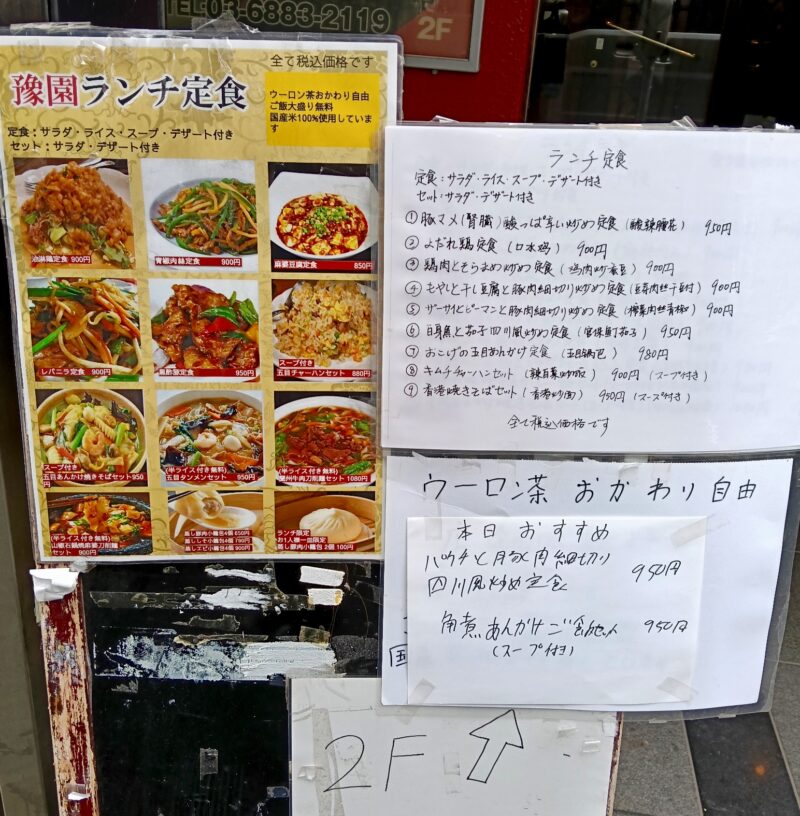 TEL03-6883-2119
2F
全て税込価格です
豫園ランチ定食
ウーロン茶おかわり自由
ご飯大盛り無料
国産米100%使用していま
す
定食：サラダ・ライス・スープ・デザート付き
セット：サラダ・デザート付き
油淋鶏定食 900円
青椒肉絲定食 900円
麻婆豆腐定食 850円
レバニラ定食 900円
黒酢豚定食 950円
スープ付き
五目チャーハンセット 880円
スープ付き
五目あんかけ焼きそばセット950
円
(半ライス付き無料)
五目タンメンセット 950円
(半ライス付き無料)
蘭州牛肉刀削麺セット 1080円
(半ライス付き無料)
山椒石鍋焼麻婆刀削麺
セット 900円
蒸し豚肉小籠包4個 650円
蒸しシそ小籠包4個 790円
蒸しエビ小籠包4個 900円
ランチ限定
お1人様一皿限定
蒸し豚肉小籠包 2個 100円
ランチ定食
定食：サラダ・ライス・スープ・デザート付き
セット：サラダ・デザート付き
① 豚マメ(腎臓)酸っぱ辛い炒め定食(酸辣腰花) 950円
② よだれ鶏定食(口水鸡) 900円
③ 鶏肉とそらまめ炒め定食(鸡肉炒蚕豆) 900円
④ もやしと干し豆腐と豚肉細切り炒め定食(豆芽肉丝干豆付) 900円
⑤ ザーサイとピーマンと豚肉細切り炒め定食(榨菜肉丝青椒) 900円
⑥ 白身魚と茄子四川風炒め定食(宮保魚丁茄子) 950円
⑦ おこげの五目あんかけ定食(五目锅巴) 980円
⑧ キムチチャーハンセット(辣白菜炒饭) 900円(スープ付き)
⑨ 香港焼きそばセット(香港炒面) 950円(スープ付き)
全て税込価格です
ウーロン茶 おかわり自由
本日おすすめ
ハチノスと豚肉細切り
四川風炒め定食 950円
角煮あんかけご飯セット 950円
(スープ付き)
国
2F